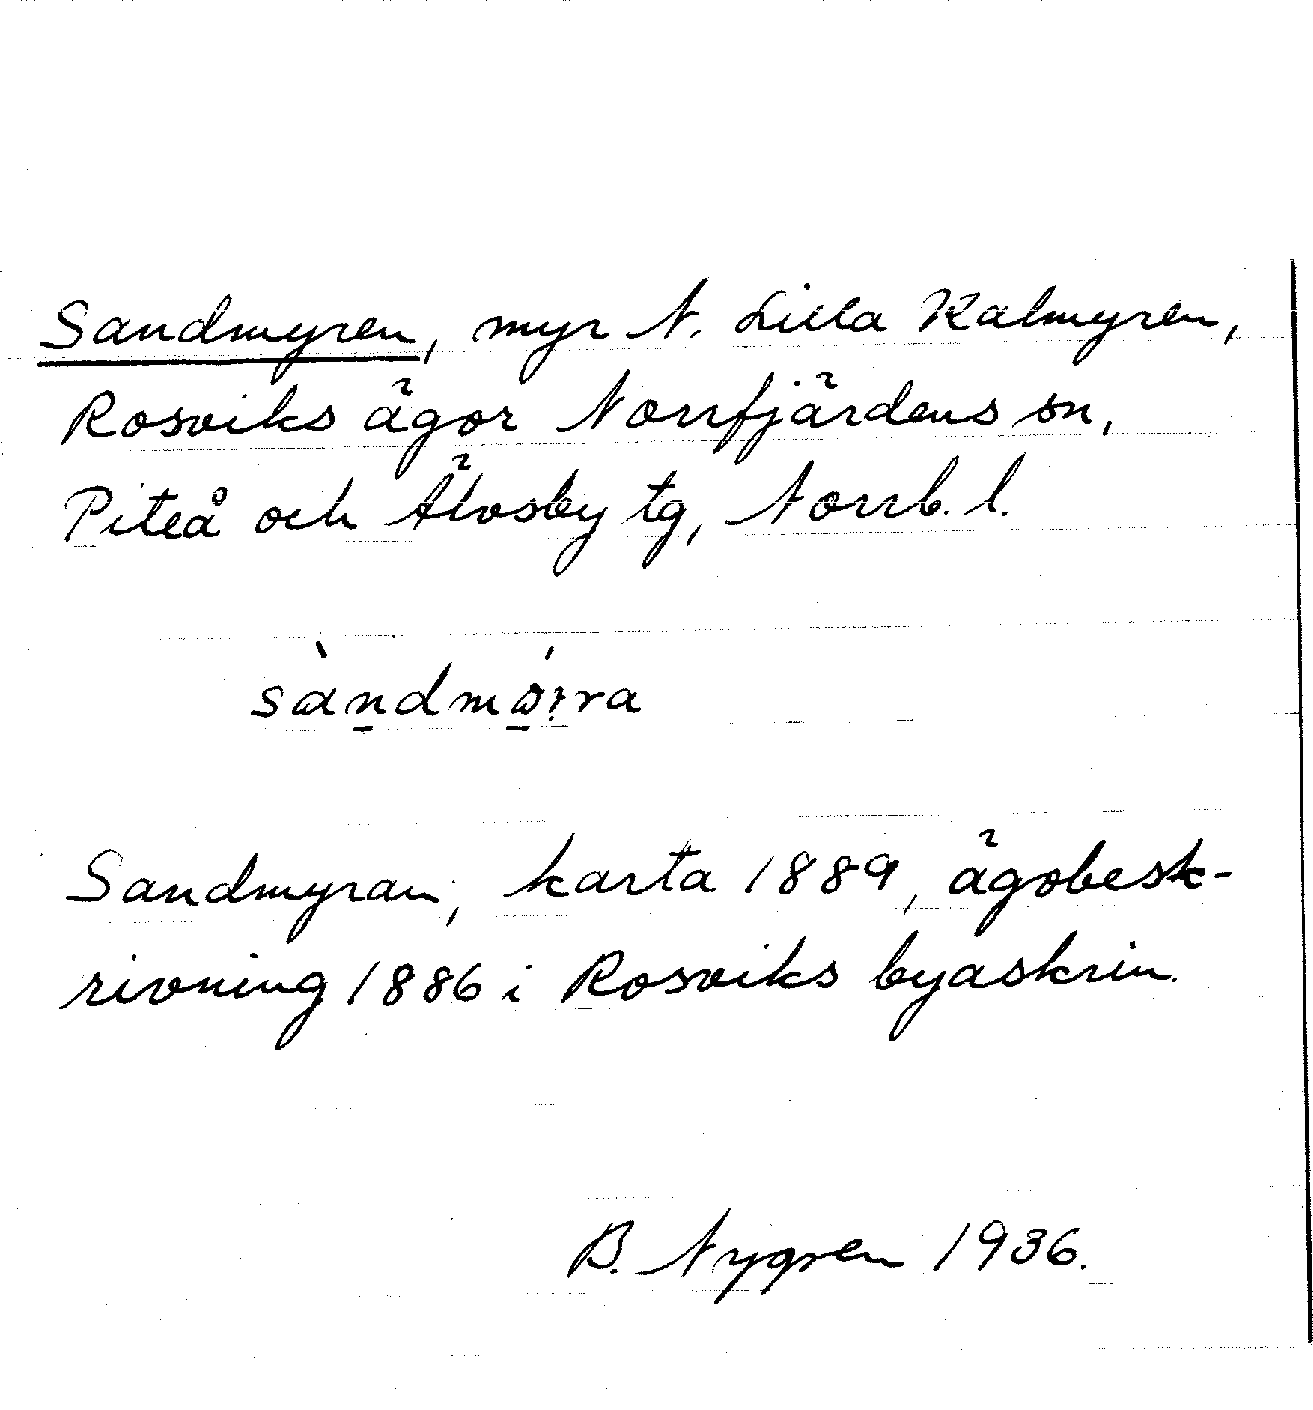 Sandmyren, myr N. Lilla Kalmyren,
Rosviks ägor Norrfjärdens sn,
Piteå och Älvsby tg, Norrb. l.
sàndmǿɪra
Sandmyran, karta 1889, ägobesk-
rivning 1886 i Rosviks byaskrin.
B. Nygren 1936.